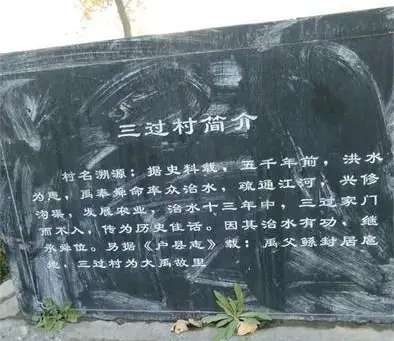 三过村简介
村名溯源：据史料载，五千年前，洪水
为患，禹奉舜命率众治水，疏通江河，兴修
沟渠，发展农业，治水十三年中，三过家门
而不入，传为历史佳话。因其治水有功，继
承舜位。另据《户县志》载：禹父鲧封居扈
地，三过村为大禹故里